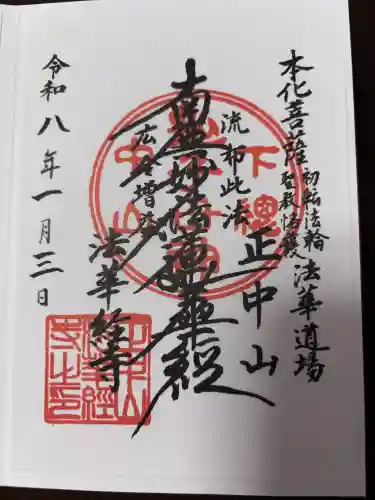 本化菩薩
初転法輪
聖教格護
法華道場
正中山
流布此法
南無妙法蓮華経
広令増益
法華経寺
令和八年一月三日